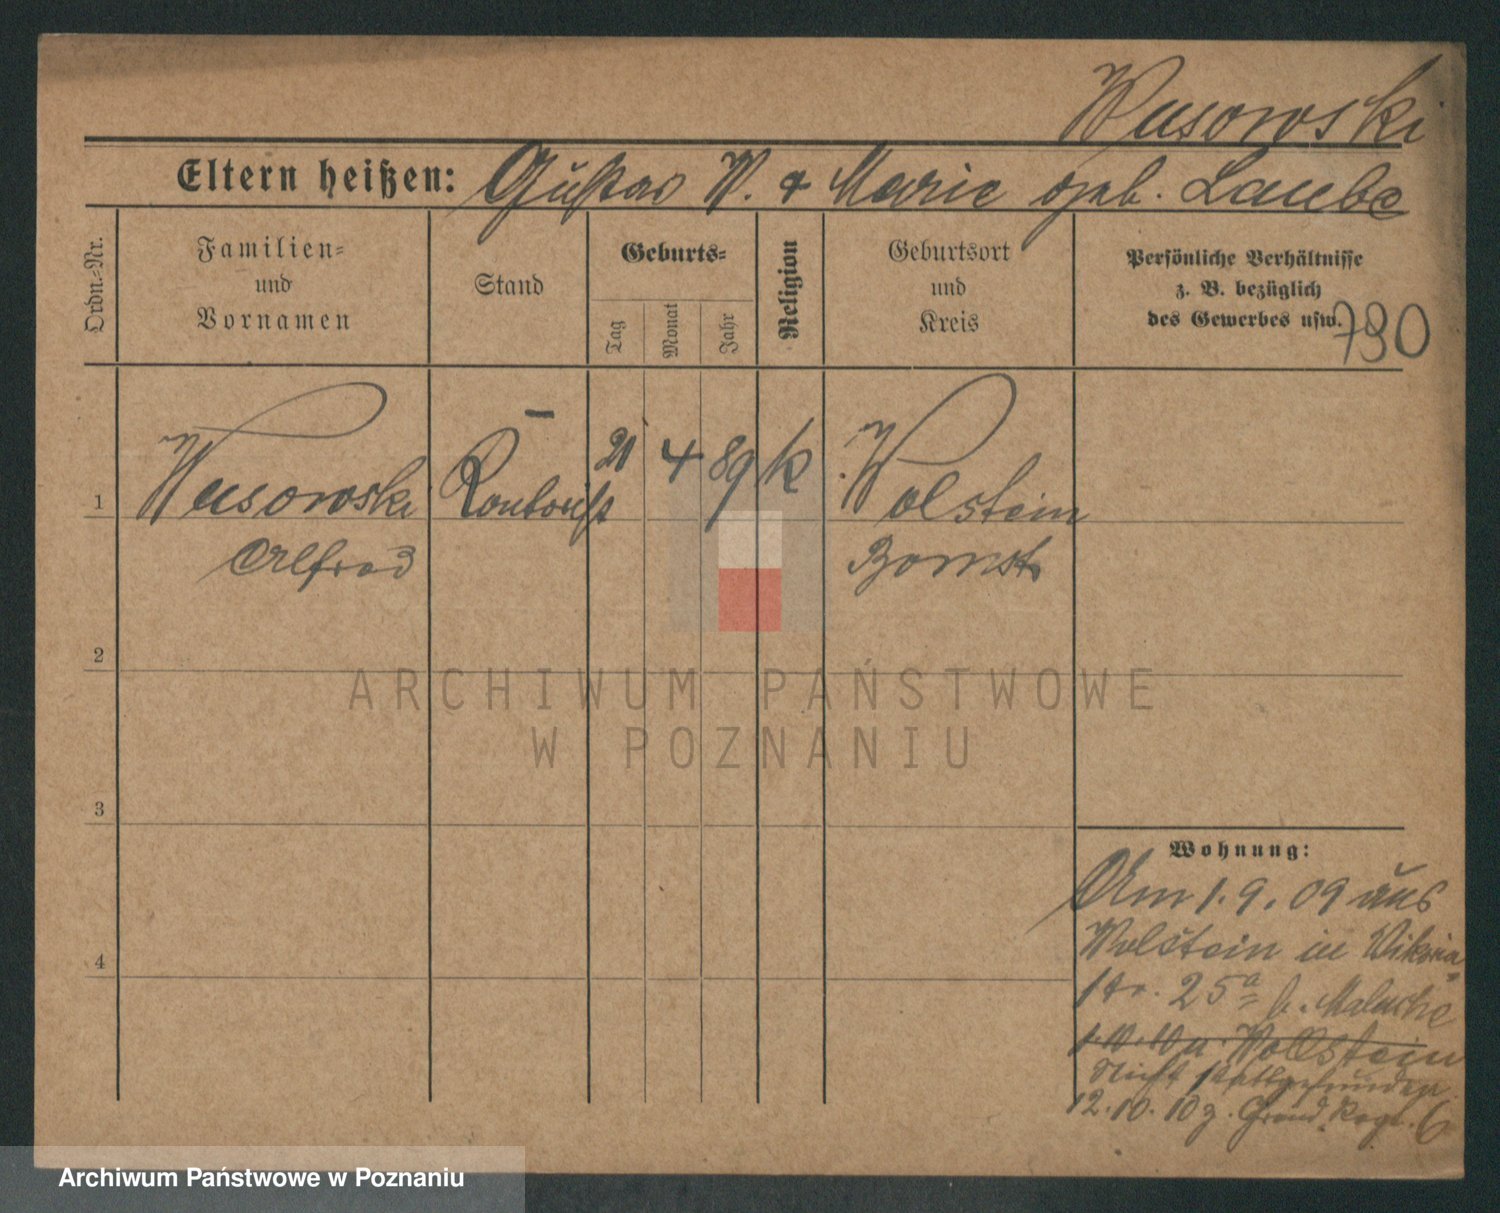 Wusowski
Eltern heißen: Gustav W. & Marie geb. Laube
Ordn.-Nr.
Familien-
und
Vornamen
Stand
Geburts-
Tag
Monat
Jahr
Religion
Geburtsort
und
Kreis
Persönliche Verhältnisse
z. B. bezüglich
des Gewerbes usw.
780
1 Wusowski Kontorist 21 4 89 k Wolstein
Alfred Bomst
2
ARCHIWUM PAŃSTWOWE
W POZNANIU
3
Wohnung:
Am 1.9.09 aus
Wolstein in Viktoria-
4
str. 25a b.
1.10.10 n. Wollstein
Nicht stattgefunden
12.10.10 z. Grend. Regt. 6
Archiwum Państwowe w Poznaniu